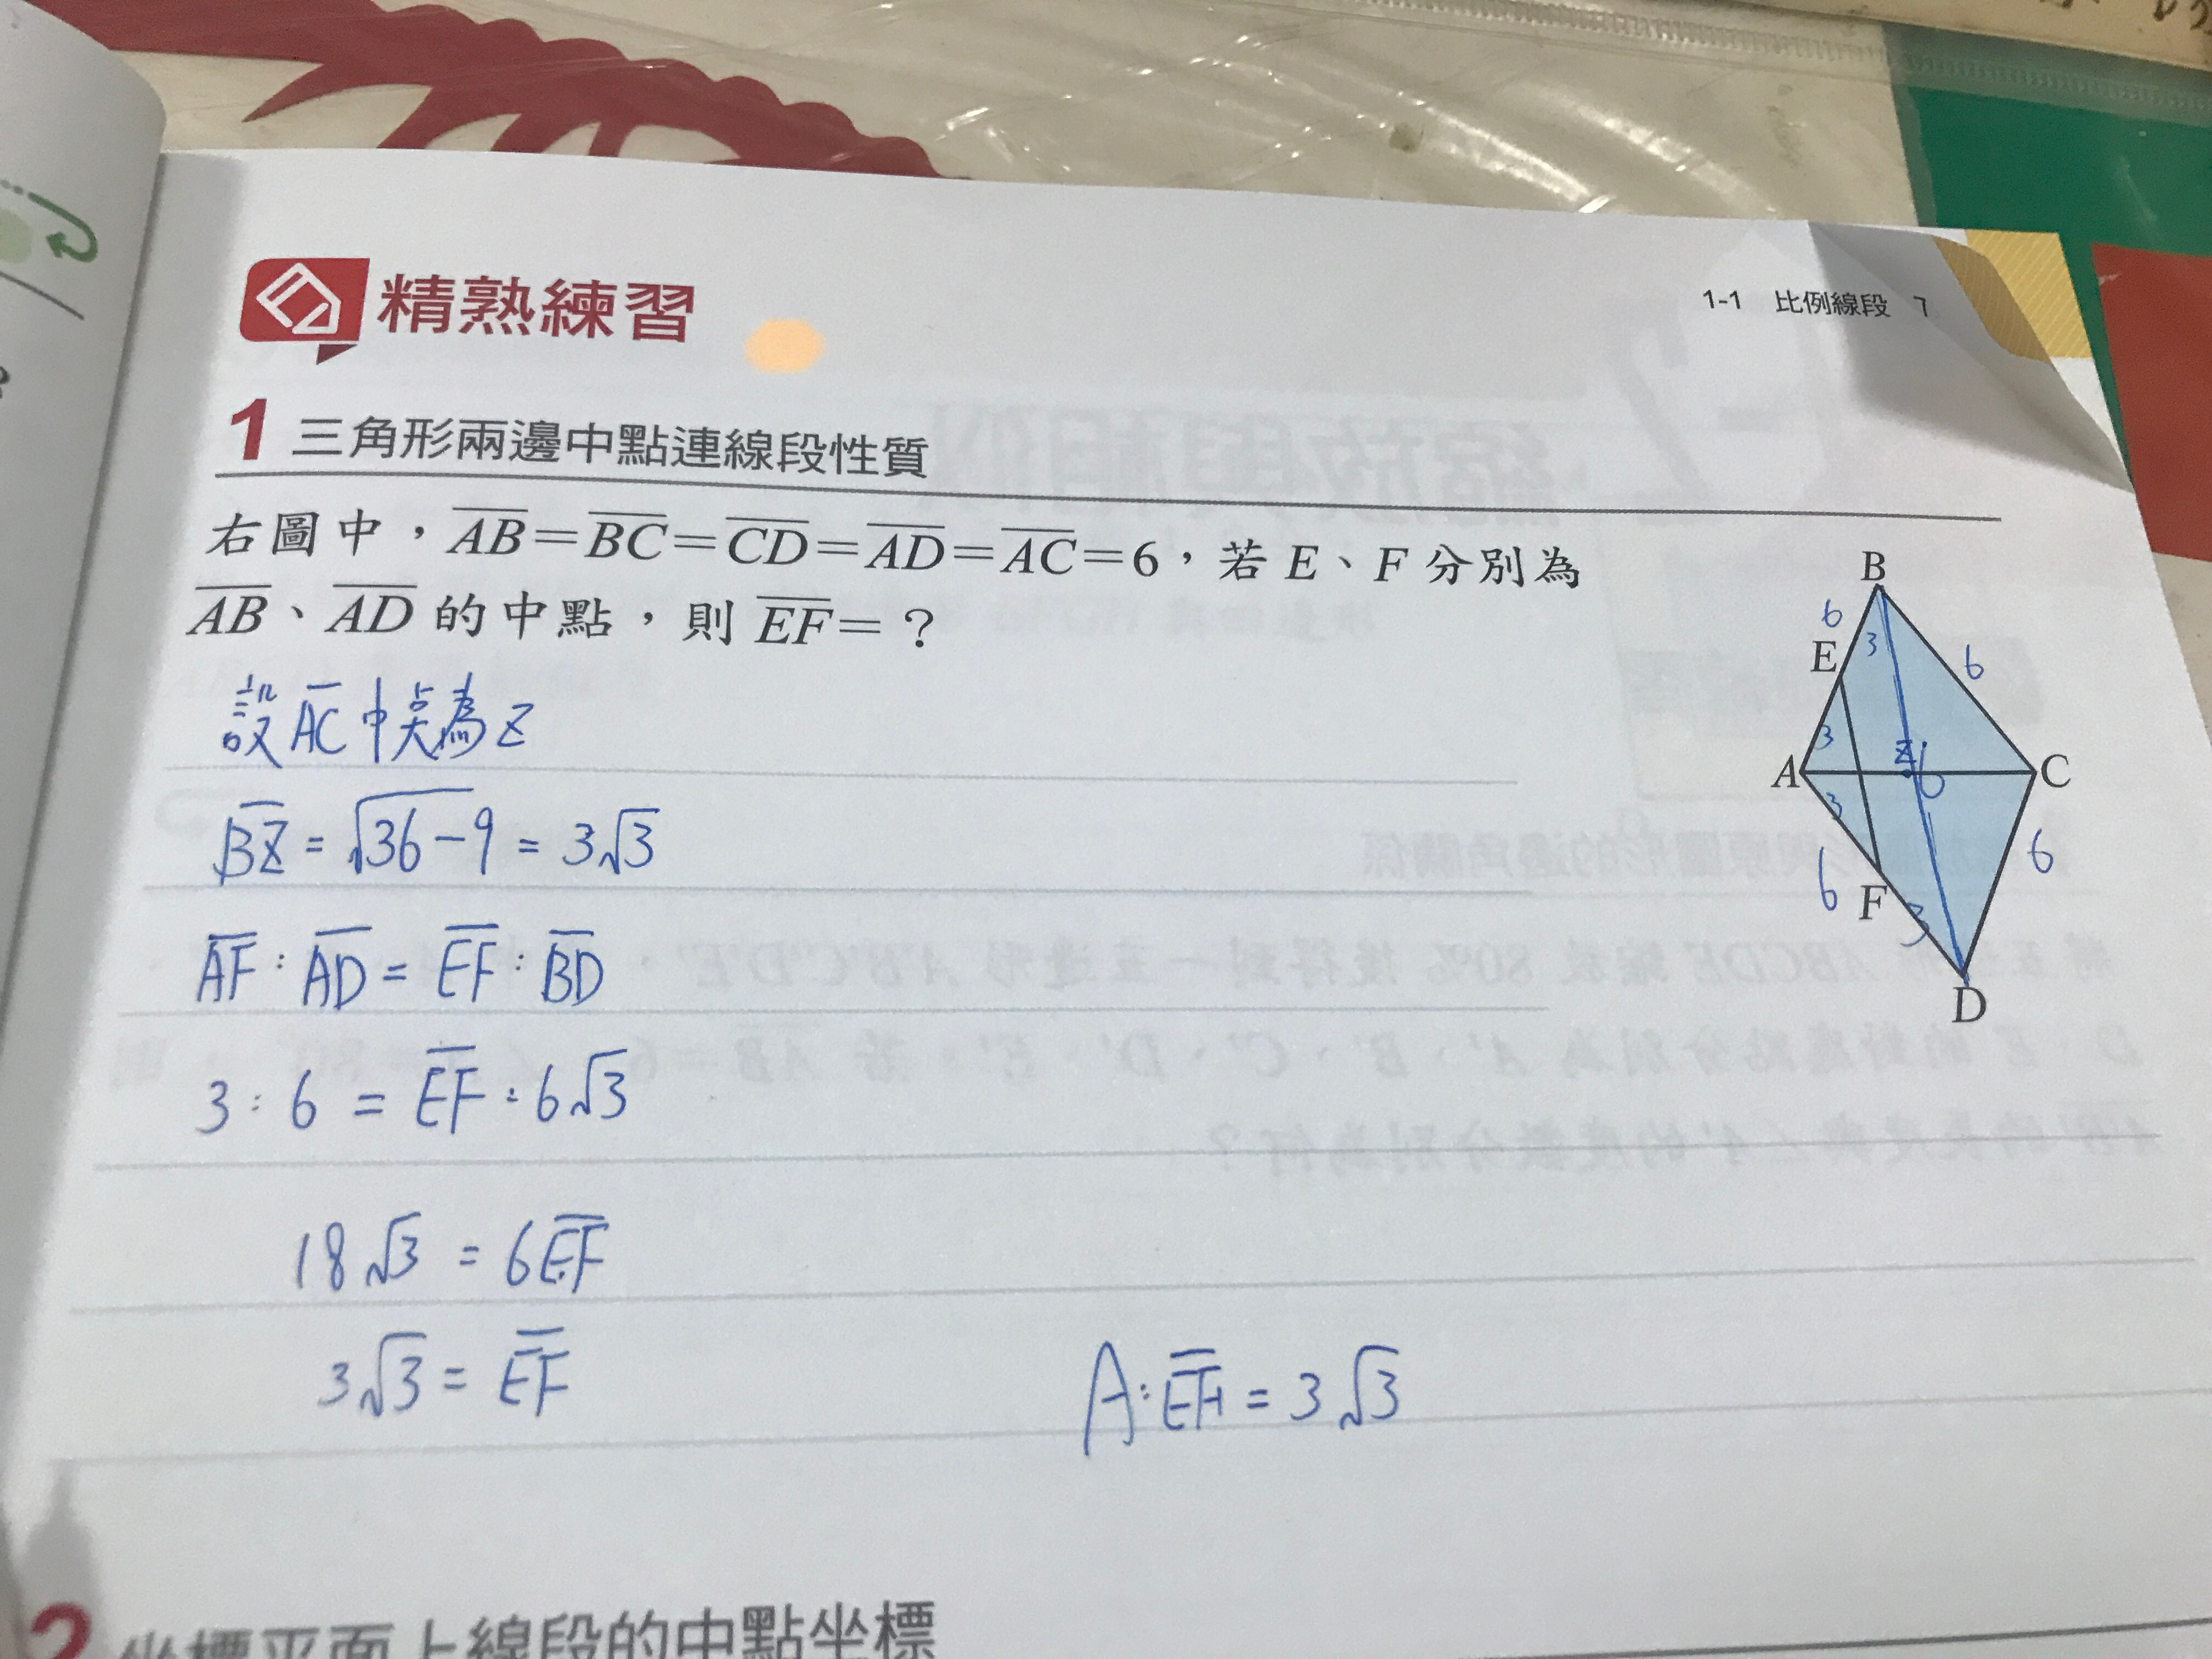 1-1 比例線段 7
精熟練習
1 三角形兩邊中點連線段性質
右圖中，AB=BC=CD=AD=AC=6，若 E、F 分別為
AB、AD 的中點，則 EF=？
B
6
3
E
6
3
A
Z
6
C
3
6
F
3
6
D
設 AC 中点為 Z
BZ = √36-9 = 3√3
AF : AD = EF : BD
3 : 6 = EF : 6√3
18√3 = 6EF
3√3 = EF
A: EF = 3√3
2 坐標平面上線段的中點坐標